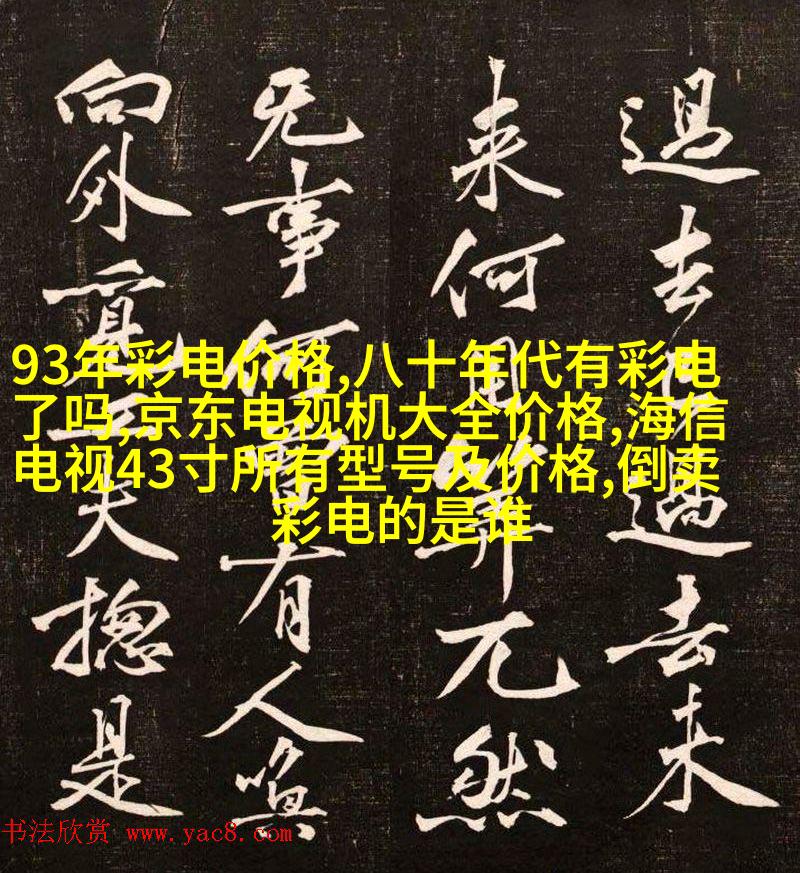 過去已過去未
来何用筭兀然
无事何曾有人喚
向外覓工夫揔是
93年彩电价格,八十年代有彩电
了吗,京东电视机大全价格,海信
电视43寸所有型号及价格,倒卖
彩电的是谁
书法欣赏 www.yac8.com